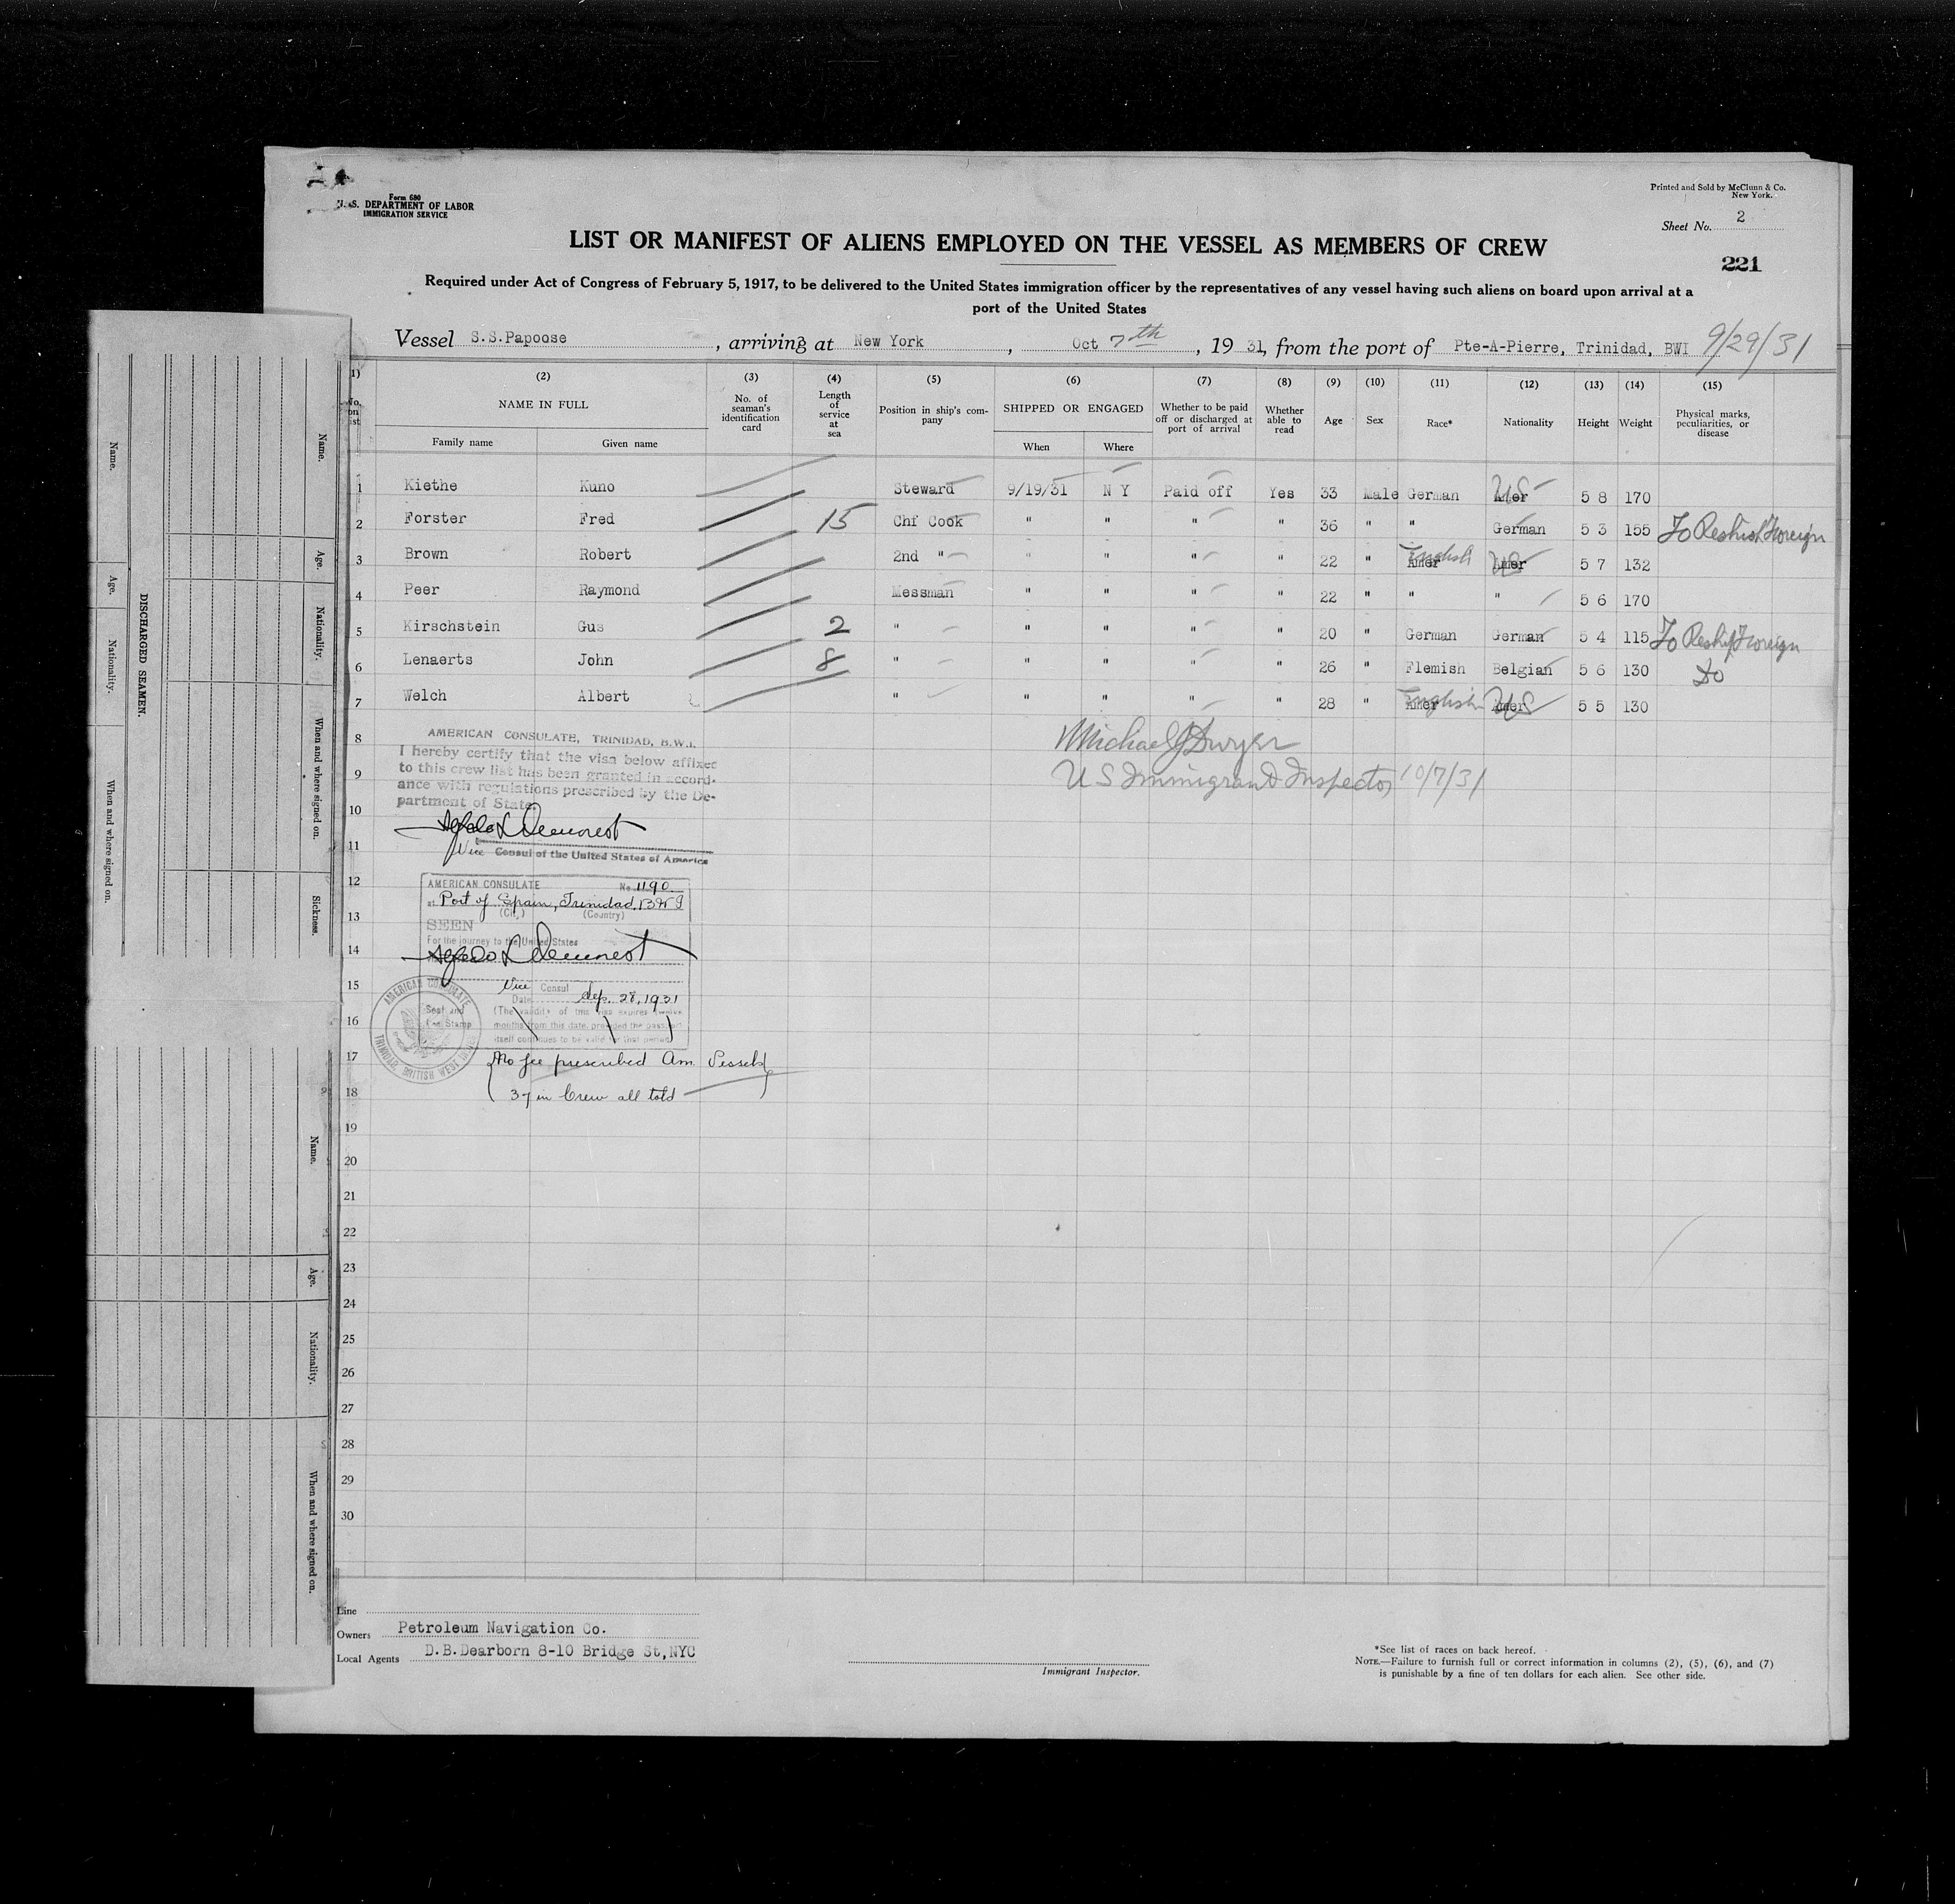 Form 680
U.S. DEPARTMENT OF LABOR
IMMIGRATION SERVICE
Printed and Sold by McClunn & Co.
New York.
Sheet No. 2
LIST OR MANIFEST OF ALIENS EMPLOYED ON THE VESSEL AS MEMBERS OF CREW
221
Required under Act of Congress of February 5, 1917, to be delivered to the United States immigration officer by the representatives of any vessel having such aliens on board upon arrival at a
port of the United States
Vessel S.S.Papoose, arriving at New York, Oct 7th, 19 31, from the port of Pte-A-Pierre, Trinidad, BWI 9/29/31
(1) (2) (3) (4) (5) (6) (7) (8) (9) (10) (11) (12) (13) (14) (15)
No. on list NAME IN FULL No. of seaman's identification card Length of service at sea Position in ship's company SHIPPED OR ENGAGED Whether to be paid off or discharged at port of arrival Whether able to read Age Sex Race* Nationality Height Weight Physical marks, peculiarities, or disease
Family name Given name When Where
1 Kiethe Kuno Steward 9/19/31 N Y Paid off Yes 33 Male German Amer US 5 8 170
2 Forster Fred 15 Chf Cook " " " " 36 " " German 5 3 155 To Reship Foreign
3 Brown Robert 2nd " " " " " 22 " Amer English Amer US 5 7 132
4 Peer Raymond Messman " " " " 22 " " " 5 6 170
5 Kirschstein Gus 2 " " " " " 20 " German German 5 4 115 To Reship Foreign
6 Lenaerts John 8 " " " " " 26 " Flemish Belgian 5 6 130 Do
7 Welch Albert " " " " " 28 " Amer English Amer US 5 5 130
8
9
10
11
12
13
14
15
16
17
18
19
20
21
22
23
24
25
26
27
28
29
30
Michael J Dwyer
US Immigrant Inspector 10/7/31
AMERICAN CONSULATE, TRINIDAD, B.W.I.
I hereby certify that the visa below affixed
to this crew list has been granted in accord-
ance with regulations prescribed by the De-
partment of State.
Vice Consul of the United States of America
AMERICAN CONSULATE No. 1190
at Port of Spain, Trinidad, BWI
(City) (Country)
SEEN
For the journey to the United States
Vice Consul
Date Sep. 28, 1931
(The validity of this visa expires twelve
months from this date, provided the passport
itself continues to be valid for that period)
Seal and
Fee Stamp
AMERICAN CONSULATE
TRINIDAD, BRITISH WEST INDIES
No fee prescribed Am. Vessels
37 in Crew all told
Line
Owners Petroleum Navigation Co.
Local Agents D.B.Dearborn 8-10 Bridge St,NYC
Immigrant Inspector.
*See list of races on back hereof.
NOTE.—Failure to furnish full or correct information in columns (2), (5), (6), and (7)
is punishable by a fine of ten dollars for each alien. See other side.
DISCHARGED SEAMEN.
Name.
Age.
Nationality.
When and where signed on.
Name.
Age.
Nationality.
When and where signed on.
Sickness.
Name.
Age.
Nationality.
When and where signed on.